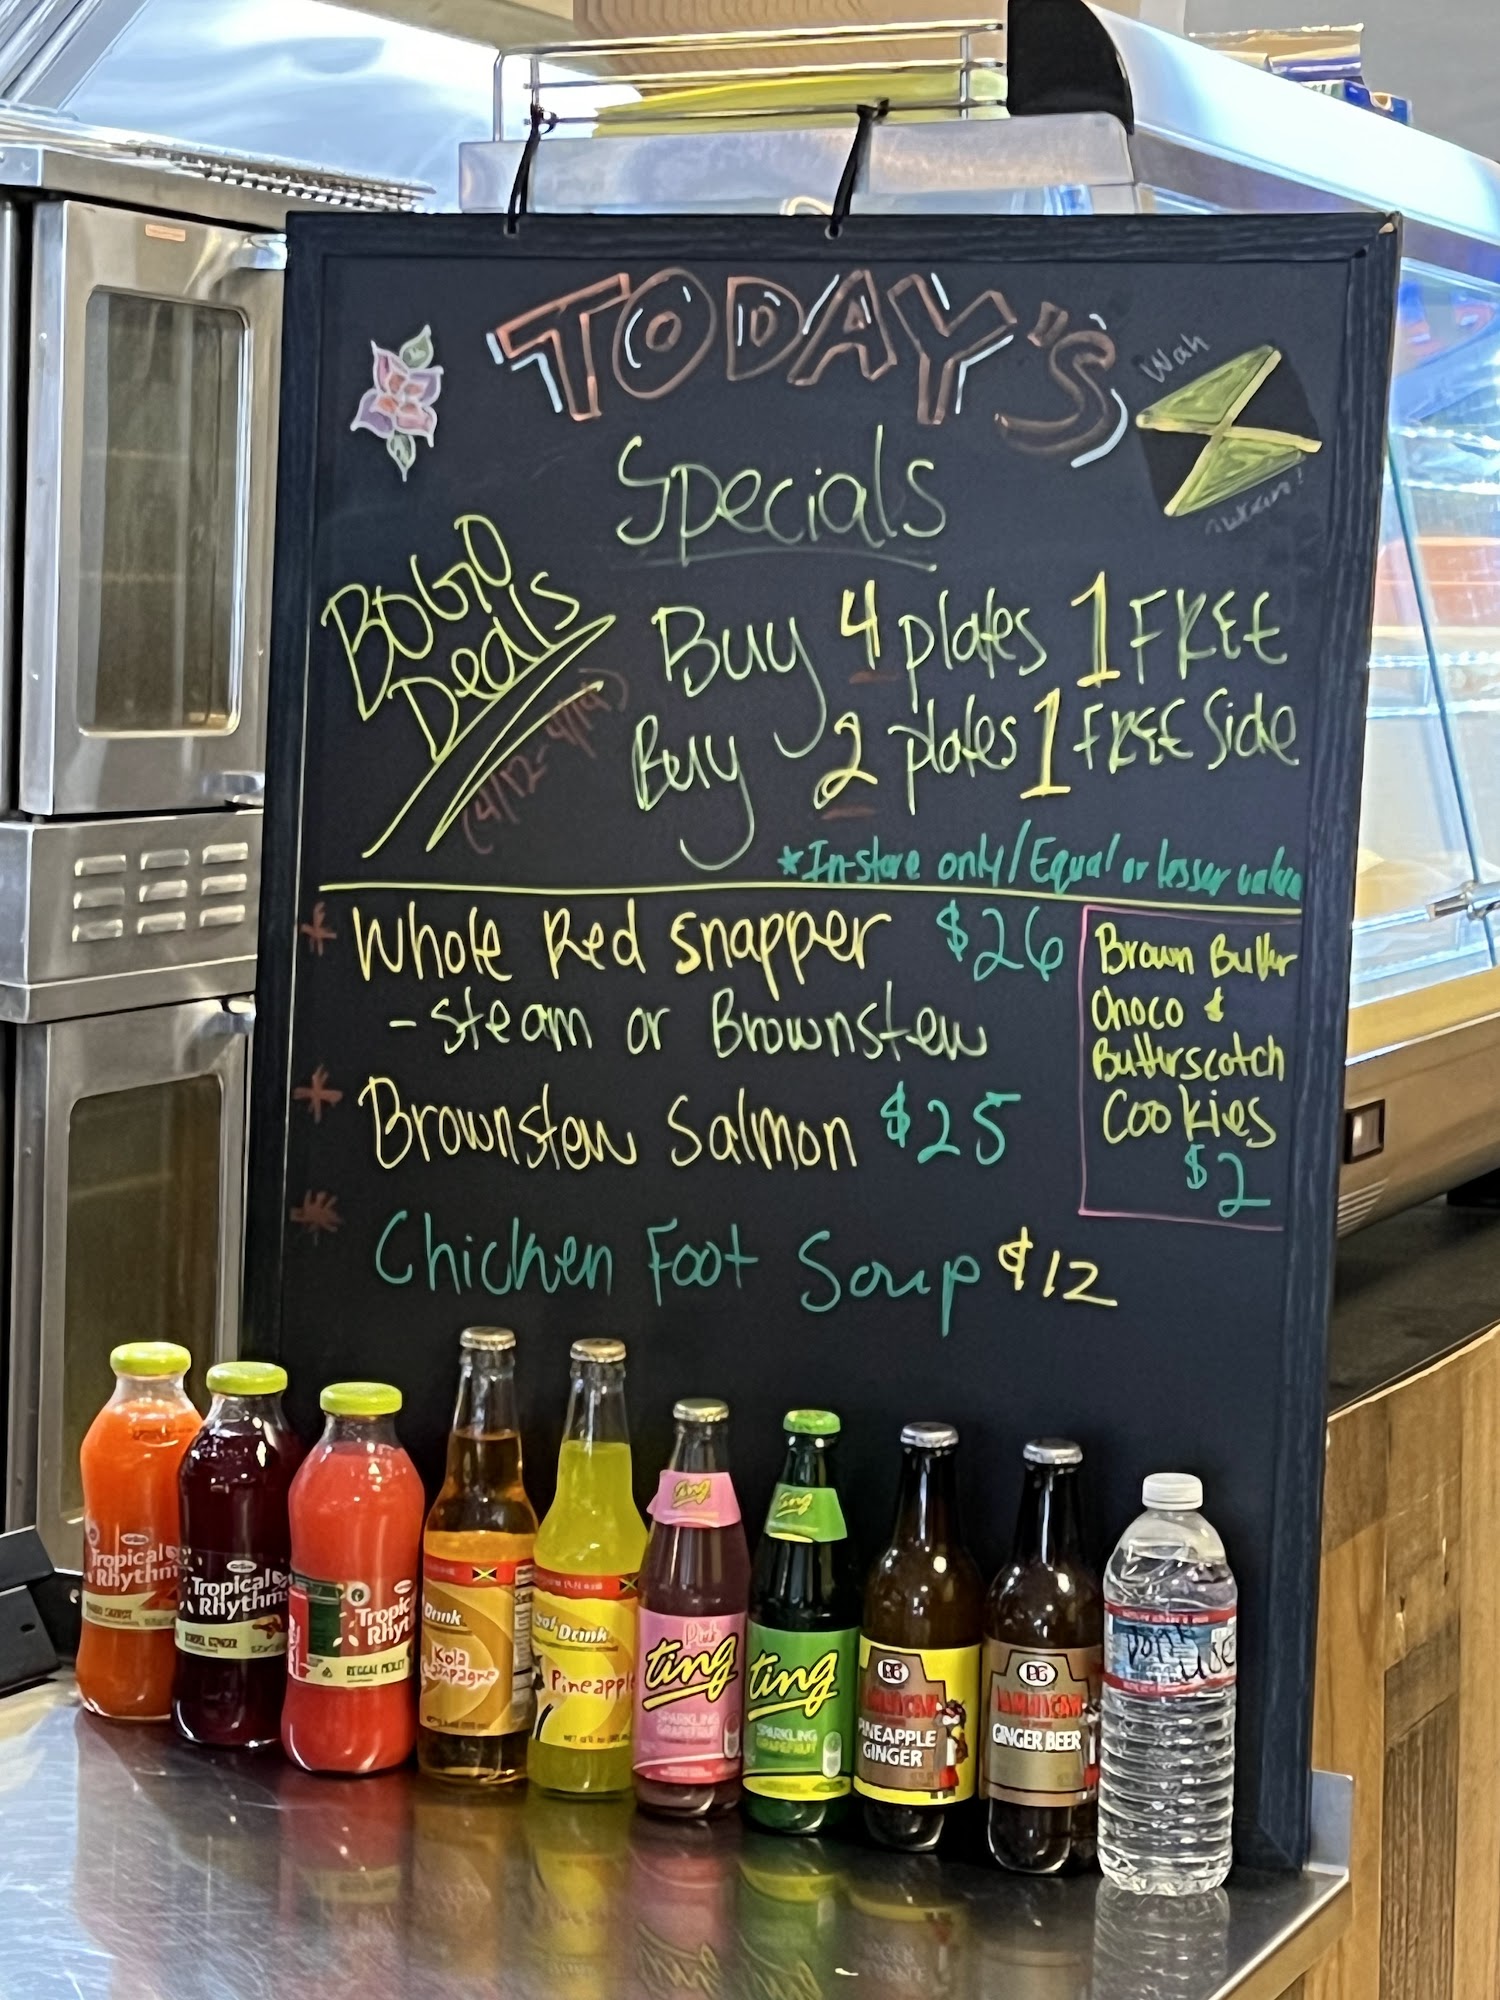 TODAY'S
Wah
Specials
BOGO
Deals
(4/12-4/19)
Buy 4 plates 1 FREE
Buy 2 plates 1 FREE Side
*In-store only/Equal or lesser value
* Whole Red Snapper $26
- Steam or Brownstew
* Brownstew Salmon $25
* Chicken Foot Soup $12
Brown Butter
Choco &
Butterscotch
Cookies
$2
Tropical
Rhythms
Tropical
Rhythms
SORREL GINGER
Tropic
Rhyt
REGGAE MEDLEY
Drink
Kola
Champagne
Drink
Pineapple
Ting
Pink
Ting
SPARKLING
GRAPEFRUIT
Ting
Ting
SPARKLING
GRAPEFRUIT
DG
JAMAICAN
PINEAPPLE
GINGER
DG
JAMAICAN
GINGER BEER
Don't
use